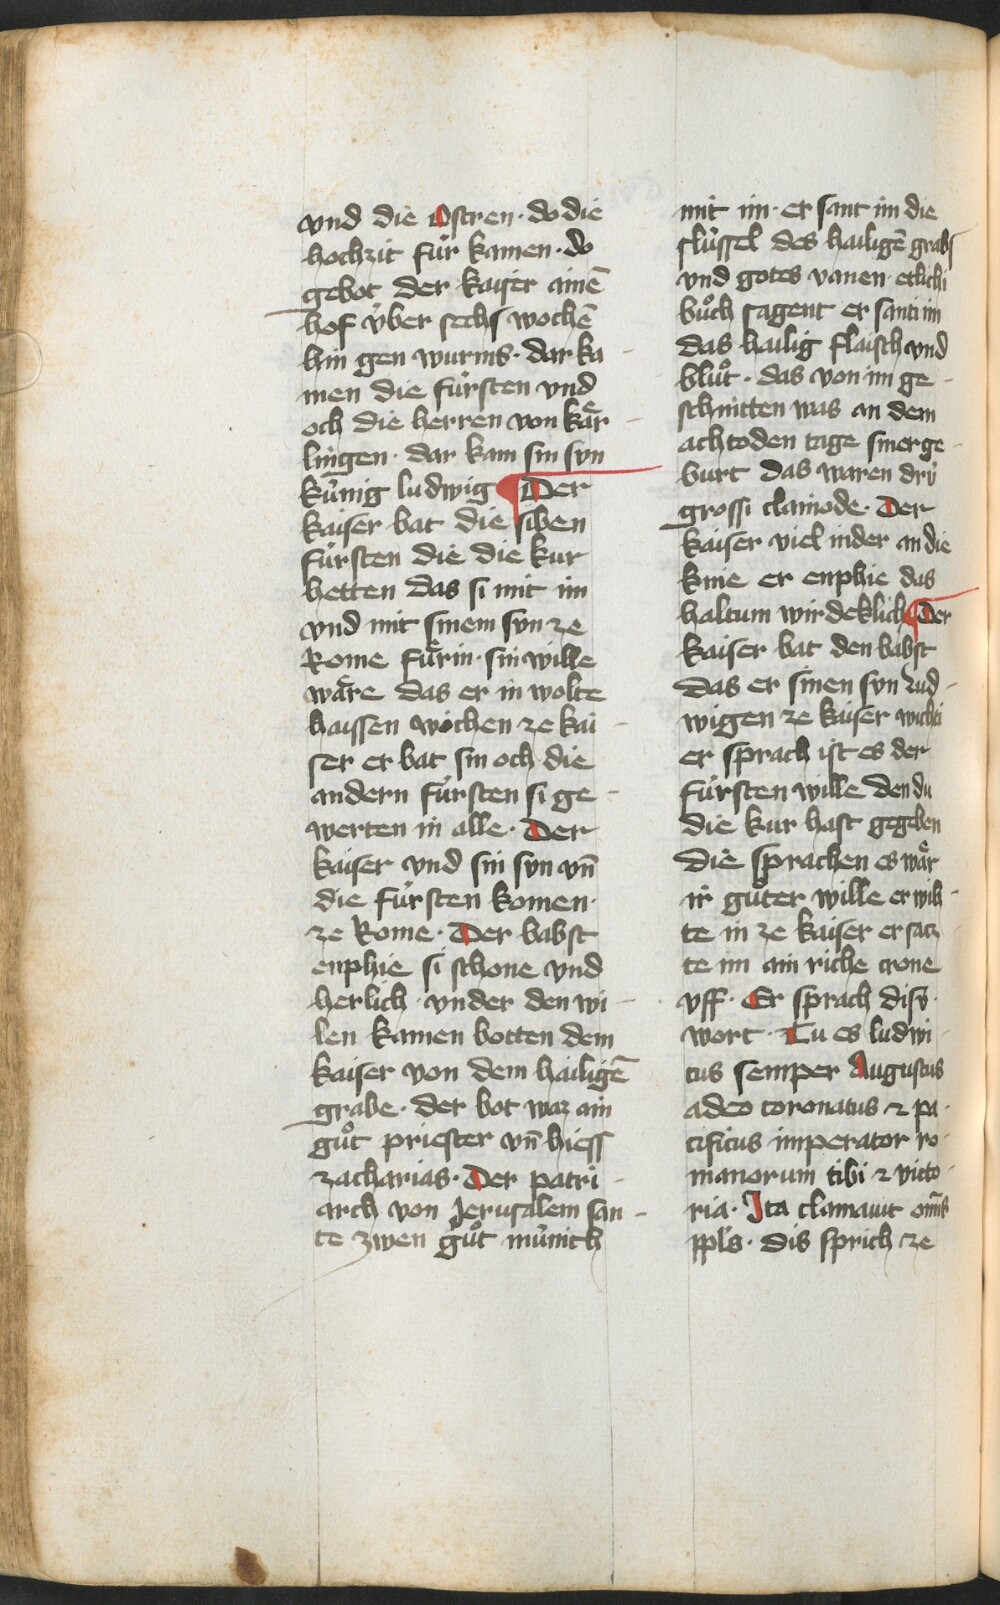 vnd die Ostren · do die
hochzit für kamen · do
gebot der kaiser ainē
hof v́ber sechs wochē
hin gen wurms · dar ka -
men die fúrsten vnd
och die herren von kaͤr -
lingen · dar kam sin svn
kúnig ludwig ¶ Der
kaiser bat die siben
fúrsten die die kur
hetten das si mit im
vnd mit sinem svn ze
Rome fuͤrin · sin wille
waͤre das er in wolte
haissen wichen ze kai -
ser er bat sin och die
andern fúrsten si ge -
werten in alle · Der
kaiser vnd sin svn vn̄
die fúrsten komen ·
ze Rome · Der babst
enphie si schone vnd
herlich · vnder den wi -
len kamen botten dem
kaiser von dem hailigē
grabe · der bot waz ain
guͦt priester vn̄ hiess
zacharias · Der patri -
arch von Jerusalem san -
te zwen guͦt múnich
mit im · er sant im die
slússel des hailigē grabs
vnd gotes vanen · etlichi
buͦch sagent er santi im
das hailig flaisch vnd
bluͦt · das von im ge -
schnitten was an dem
achtoden tage siner ge -
burt das waren drv́
grossi clainode · Der
kaiser viel nider an die
knie er enphie das
haltum wirdeklich ¶ Der
kaiser bat den babst
das er sinen svn Lud -
wigen ze kaiser wichti
er sprach ist es der
fúrsten wille den du
die kur hast gegeben
die sprachen es waͤr
ir guͦter wille er wih -
te in ze kaiser er satz -
te im ain riche crone
vff · Er sprach disv́
wort · Tu es ludwi
cus semper Augustus
adeo coronatus ⁊ pa -
cificus imperator ro -
manorum tibi ⁊ victo -
ria · Ita clamauit om̄is
ppl's · dis sprich ze